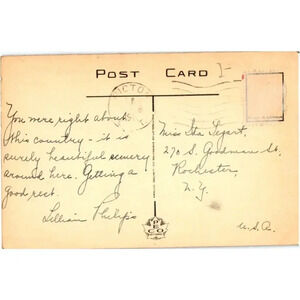 POST CARD
VICTO
You were right about
this country - it is
surely beautiful scenery
around here. Getting a
good rest.
Lillian Philips
Miss Ida
270 S. Goodman St.
Rochester
N.Y.
U.S.A.